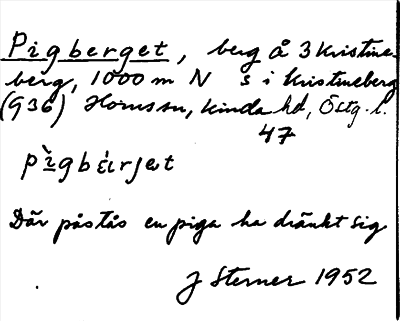 Pigberget, berg å 3 Kristine-
berg, 1000 m N s i Kristineberg
(936) Horns sn, Kinda hd, Östg. l.
47
pìgbærjet
Där påstås en piga ha dränkt sig
J Sterner 1952